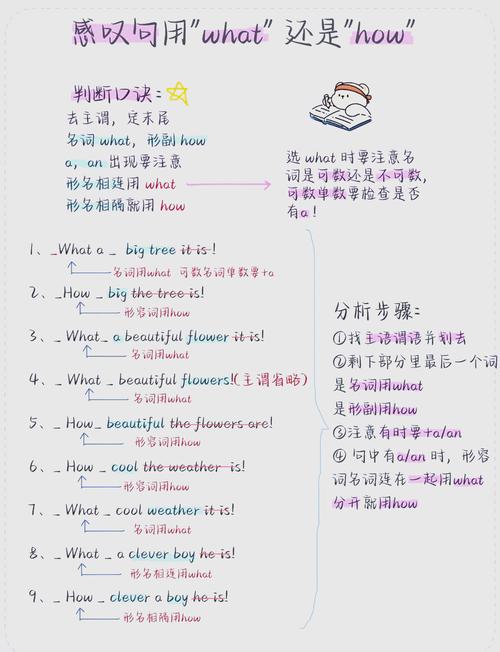 感叹句用"what" 还是"how"
判断口诀：
去主谓，定末尾
名词 what，形副 how
a，an 出现要注意
形名相连用 what
形名相隔就用 how
选 what 时要注意名
词是可数还是不可数，
可数单数要检查是否
有a！
1、_What a _ big tree it is!
名词用what 可数名词单数要+a
2、_How _ big the tree is!
形容词用how
3、_ What_ a beautiful flower it is!
名词用what
4、_ What _ beautiful flowers!(主谓省略)
名词用what
5、_ How_ beautiful the flowers are!
形容词用how
6、_ How _ cool the weather is!
形容词用how
7、_ What _ cool weather it is!
名词用what
8、_ What _ a clever boy he is!
形名相连用what
9、_ How _ clever a boy he is!
形名相隔用how
分析步骤：
①找主语谓语并划去
②剩下部分里最后一个词
是名词用what
是形副用how
③注意有时要+a/an
④ 句中有a/an 时，形容
词名词连在一起用what
分开就用how